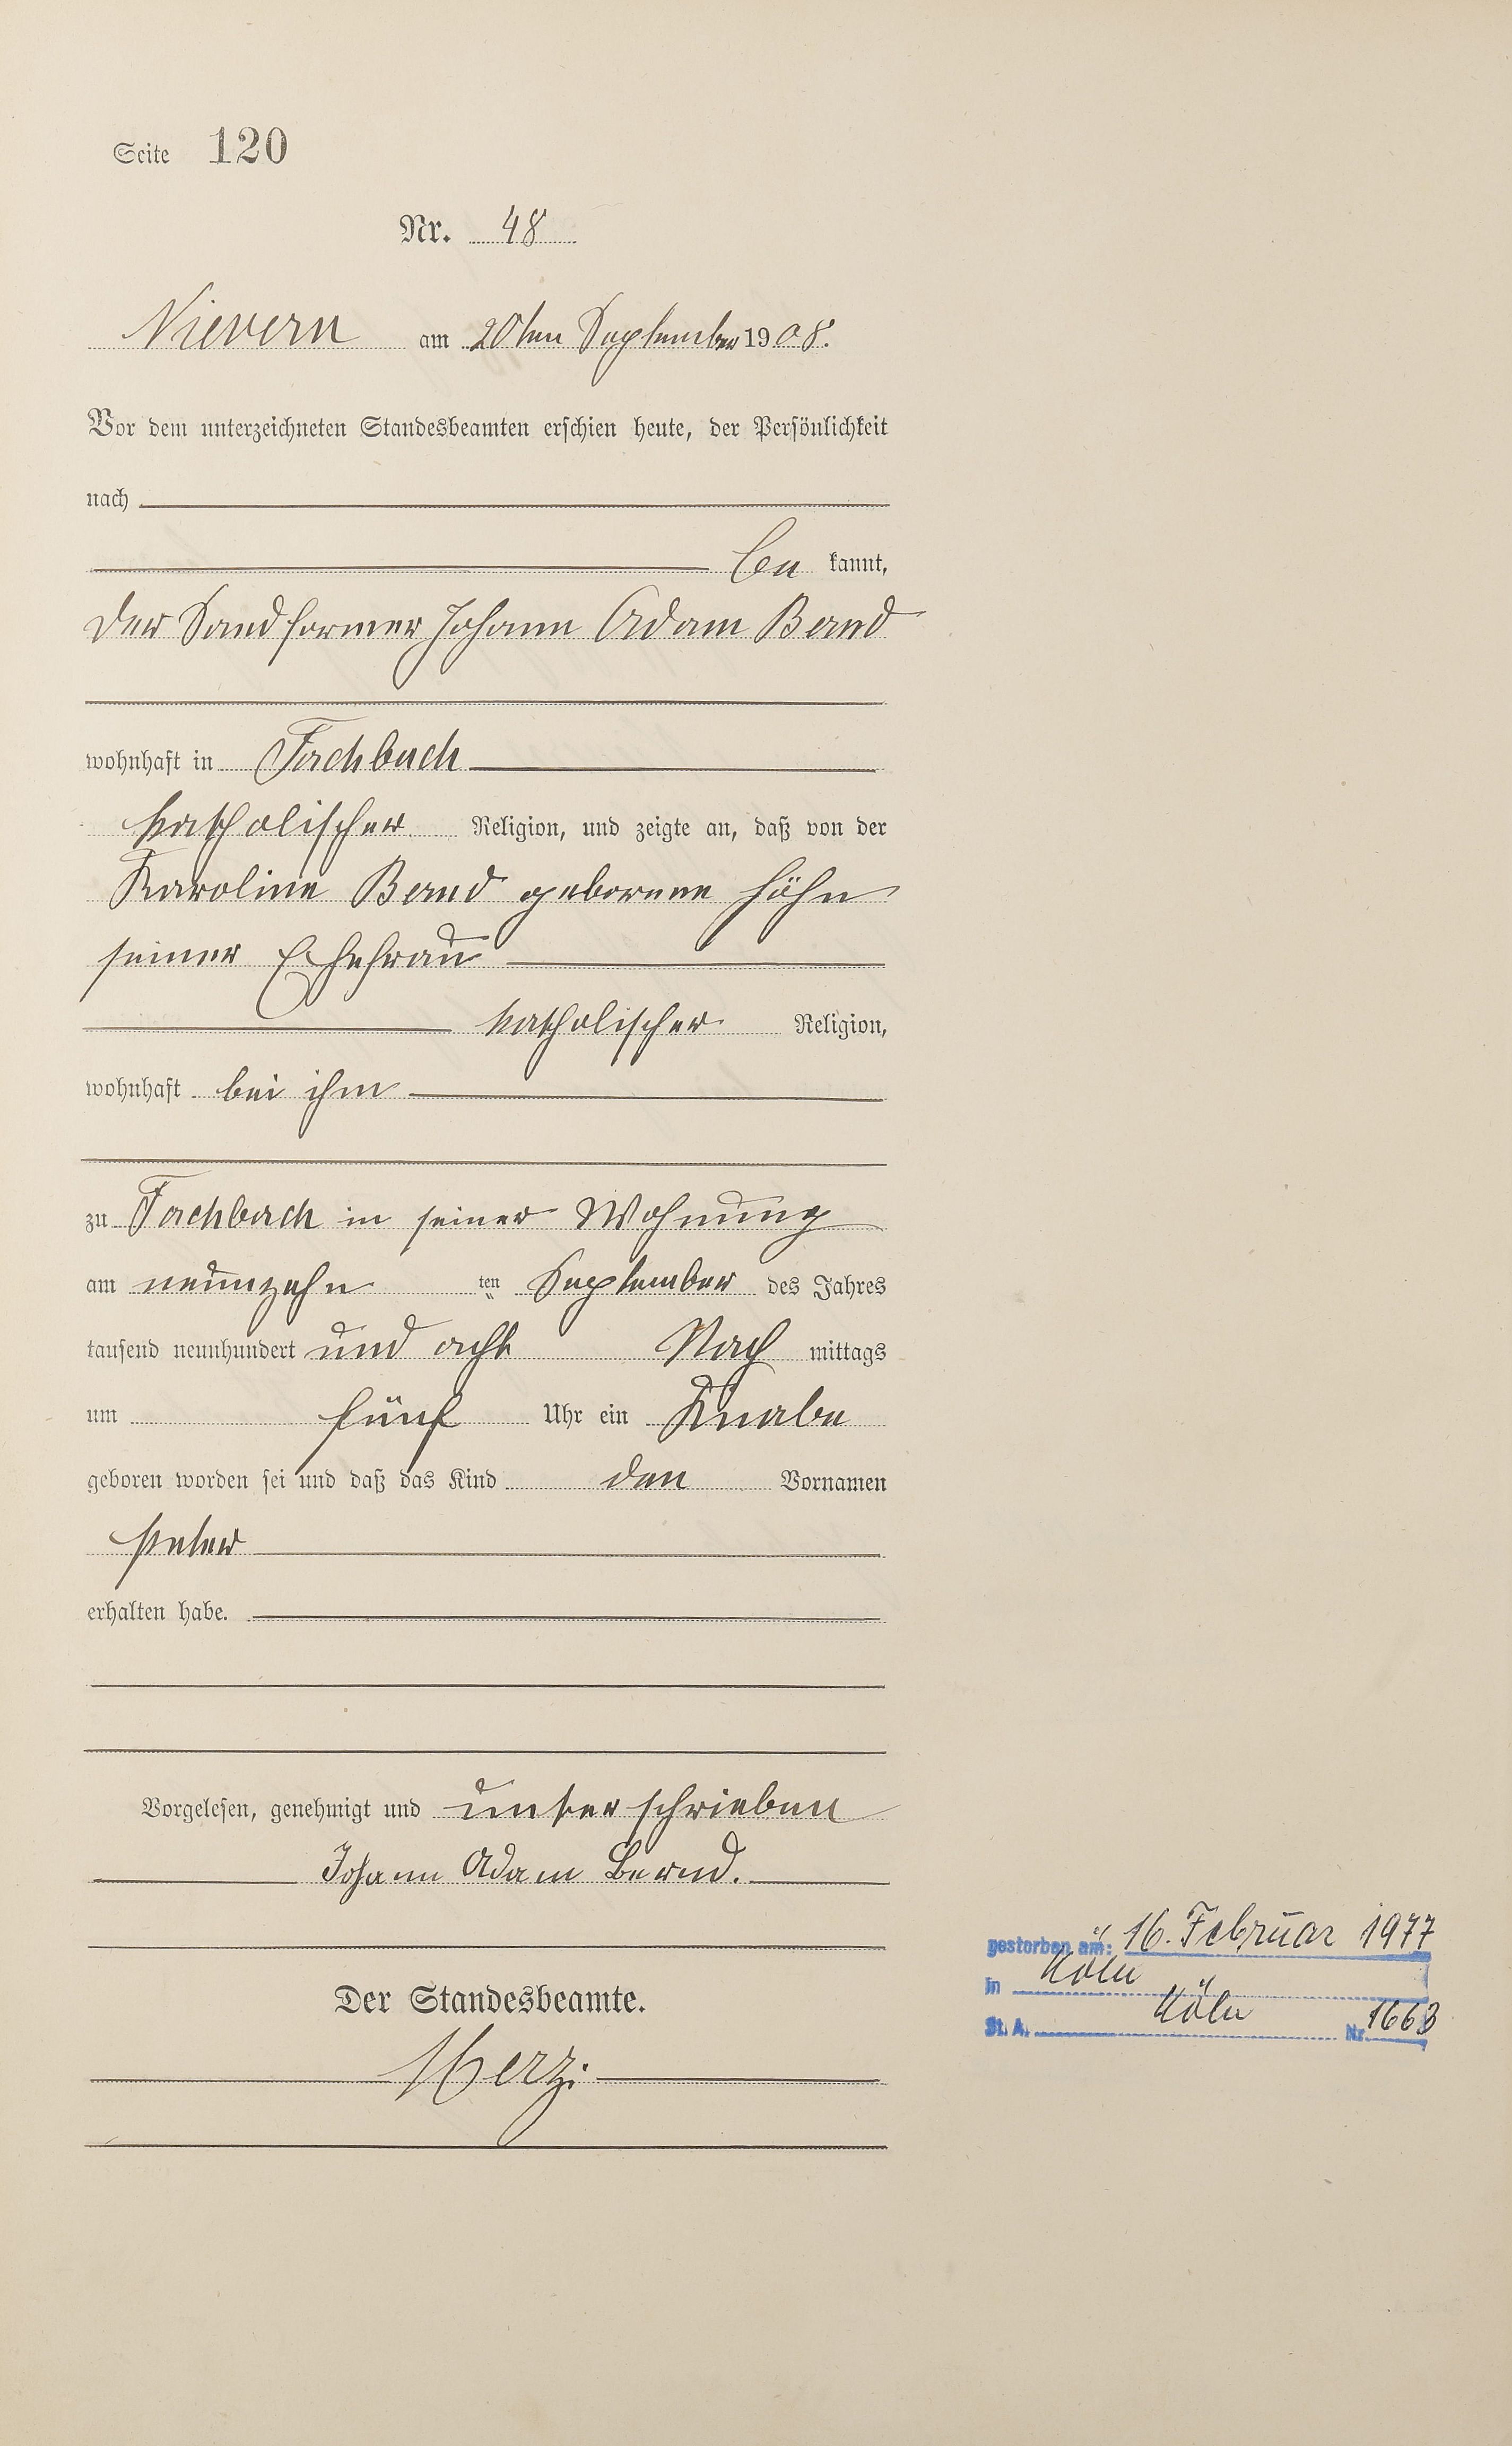 Seite 120
Nr. 48
Nievern am 20ten September 1908.
Vor dem unterzeichneten Standesbeamten erschien heute, der Persönlichkeit
nach
be kannt,
der Sandformer Johann Adam Bernd
wohnhaft in Fachbach
katholischer Religion, und zeigte an, daß von der
Karoline Bernd geborene Höhn
seiner Ehefrau
katholischer Religion,
wohnhaft bei ihm
zu Fachbach in seiner Wohnung
am neunzehn ten September des Jahres
tausend neunhundert und acht Nach mittags
um fünf Uhr ein Knabe
geboren worden sei und daß das Kind den Vornamen
Peter
erhalten habe.
Vorgelesen, genehmigt und unterschrieben
Johann Adam Bernd.
Der Standesbeamte.
Herzi
gestorben am: 16. Februar 1977
in Köln
St. A. Köln Nr. 1663